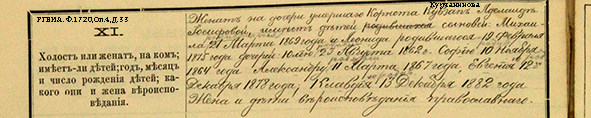 РГВИА. Ф.1720,Оп4,Д.33
Кубжаннова
XI.
Холостъ или женатъ, на комъ;
имѣетъ-ли дѣтей; годъ, мѣсяцъ
и число рожденія дѣтей; ка-
кого они и жена вѣроиспо-
вѣданія.
Женатъ на дочери умершаго Корнета Аделаидѣ
Іосифовой, имѣетъ дѣтей родившихся: сыновей: Михаи-
ла 21 Марта 1869 года и Леонида родившагося 19 Февраля
1875 года дочерей 27 Августа 1862 г. Софью 10 Ноября
1864 года, Александру 11 Марта 1867 года, Евгенію 12го
Декабря 1878 года, Клавдія 13 Декабря 1882 года
Жена и дѣти вѣроисповѣданія православнаго.